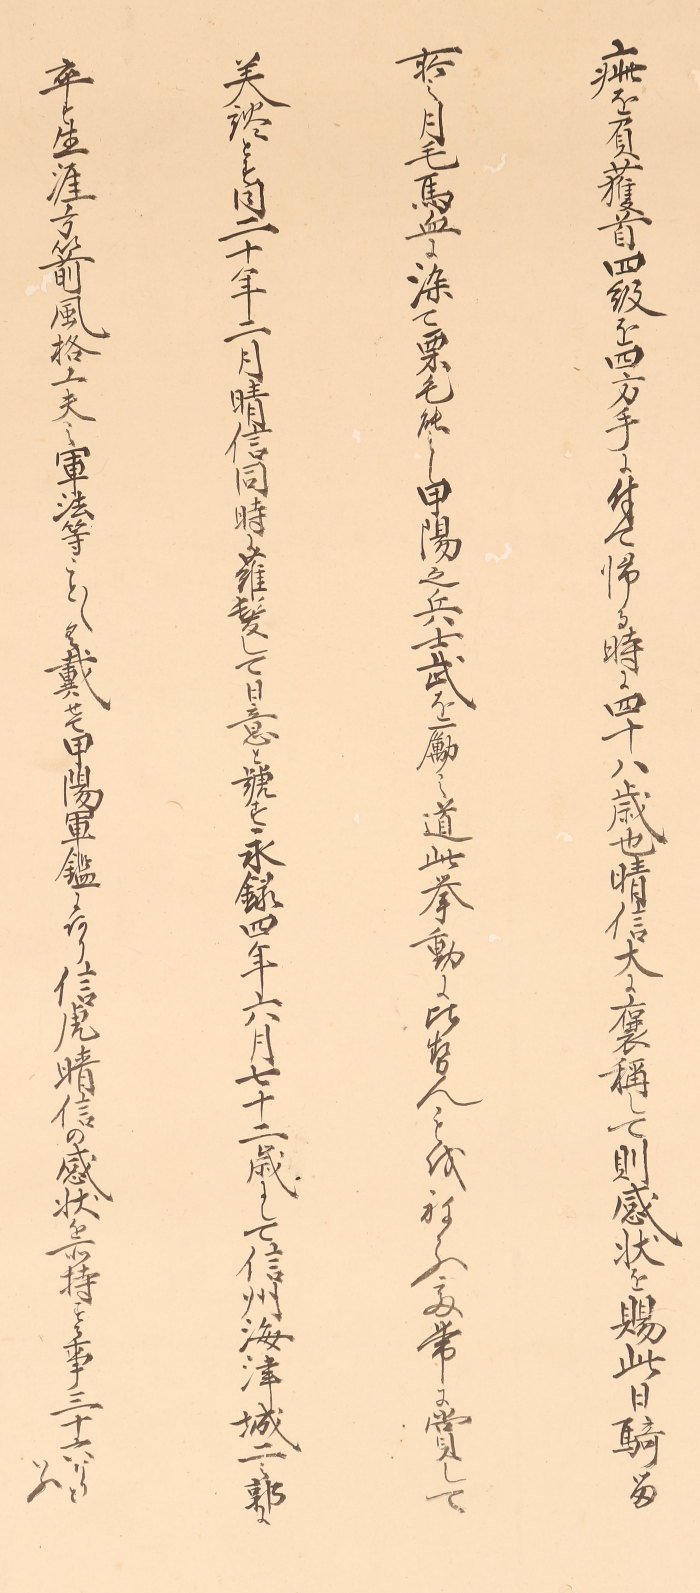 疵を負獲首四級を四方手に付て帰る時に四十八歳也晴信大に褒称して則感状を賜此日騎る
所之月毛馬血に染て栗毛のことし甲陽之兵士武を励之道此挙動に比せんことを 常に賞して
美談とす同二十年二月晴信同時に薙髪して日意と号す永禄四年六月七十二歳にして信州海津城二之郭に
卒す生涯方箭風格工夫之軍法等ことことく載て甲陽軍鑑にあり信虎晴信の感状を所持する事三十六なりと